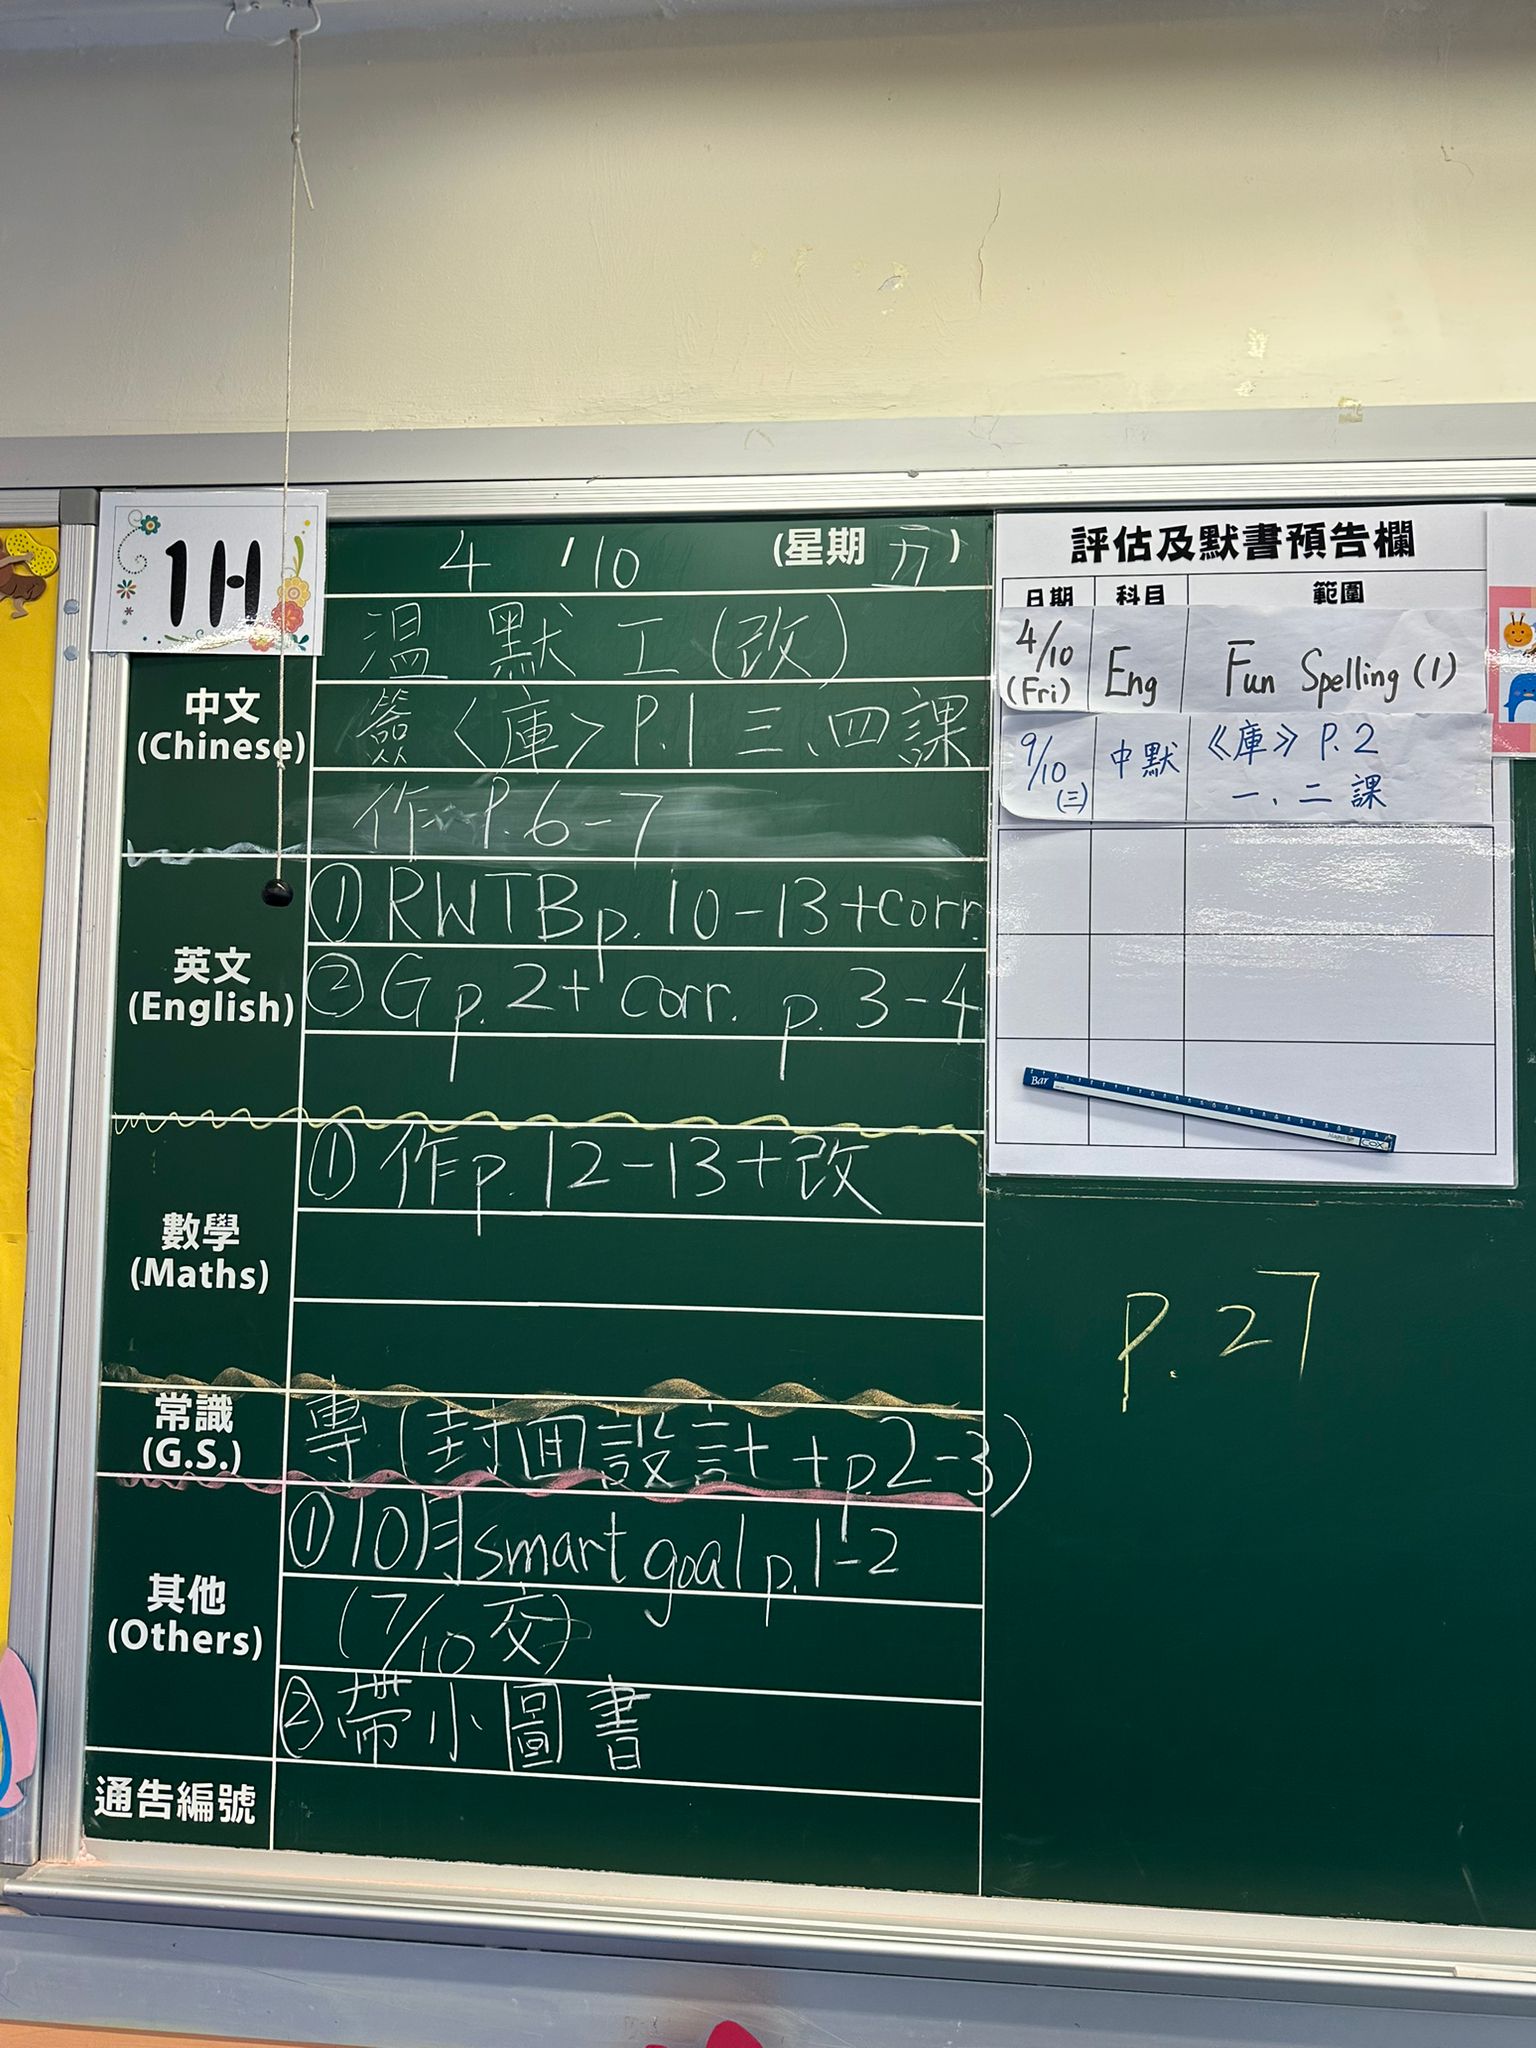 1H
4 / 10 (星期 五)
中文
(Chinese)
溫 默 工 (改)
簽〈庫〉P.1 三、四課
作 P.6-7
英文
(English)
① RWTB p. 10-13 + corr.
② G p. 2 + corr. p. 3-4
數學
(Maths)
① 作 p. 12-13 + 改
常識
(G.S.)
專 (封面設計 + p.2-3)
其他
(Others)
① 10月 smart goal p.1-2
(7/10 交)
② 帶小圖書
通告編號
評估及默書預告欄
日期 科目 範圍
4/10 (Fri) Eng Fun Spelling (1)
9/10 (三) 中默 《庫》 P.2
一、二課
Bar
COX
P. 27